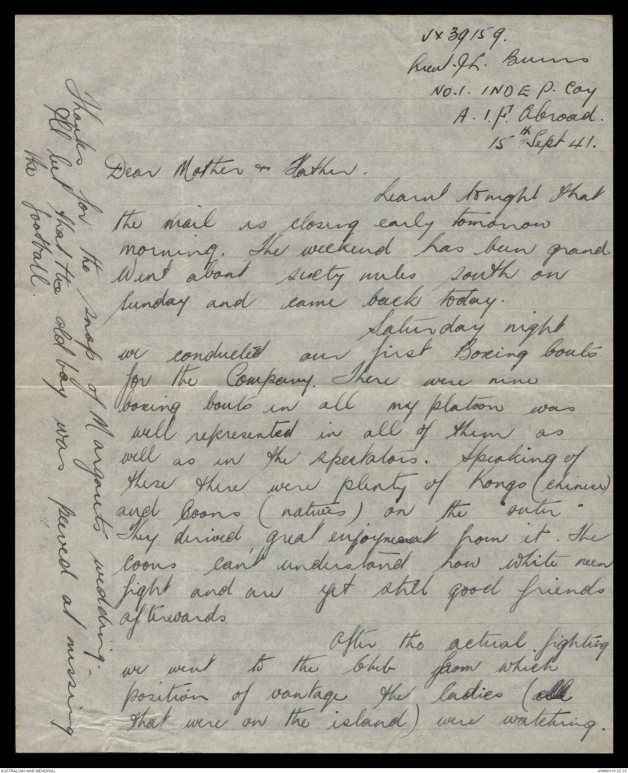 VX39159.
Lieut. J.L. Burns
No.1. INDEP. Coy
A.I.F. Abroad.
15th Sept 41.
Dear Mother & Father.
Learnt tonight that
the mail is closing early tomorrow
morning. The weekend has been grand.
Went about sixty miles south on
Sunday and came back today.
Saturday night
we conducted our first Boxing bouts
for the Company. There were nine
boxing bouts in all my platoon was
well represented in all of them as
well as in the spectators. Speaking of
these there were plenty of Kongs (chinese)
and Coons (natives) on the "outer"
They derived great enjoyment from it. The
coons can't understand how white men
fight and are yet still good friends
afterwards.
After the actual fighting
we went to the Club from which
position of vantage the ladies (all
that were on the island) were watching.
Thanks for the snap of Margaret's wedding.
I'll bet that the old boy was peeved at missing
the football.
AUSTRALIAN WAR MEMORIAL